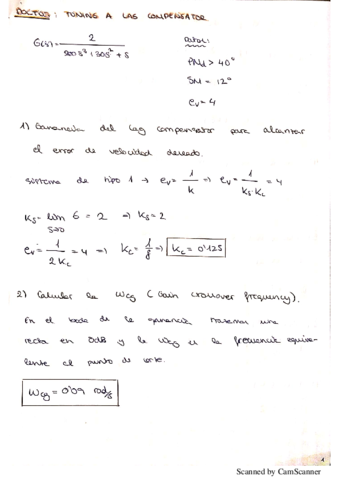 DOCTOS: TUNING A LAG COMPENSATOR
G(s) = 2 / (200s³ + 30s² + s)
Datos:
PM > 40°
SM = 12°
ev = 4
1) Ganancia del Lag compensator para alcanzar
el error de velocidad deseado.
sistema de tipo 1 → ev = 1/k ⇒ ev = 1/(Ks·Kc) = 4
Ks = lim s→0 G = 2 ⇒ Ks = 2
ev = 1/(2Kc) = 4 ⇒ Kc = 1/8 ⇒ Kc = 0'125
2) Calcular la Wcg (Gain crossover frequency).
En el bode de la ganancia trazamos una
recta en 0dB y la Wcg es la frecuencia equiva-
lente al punto de corte.
Wcg = 0'09 rad/s
1
Scanned by CamScanner